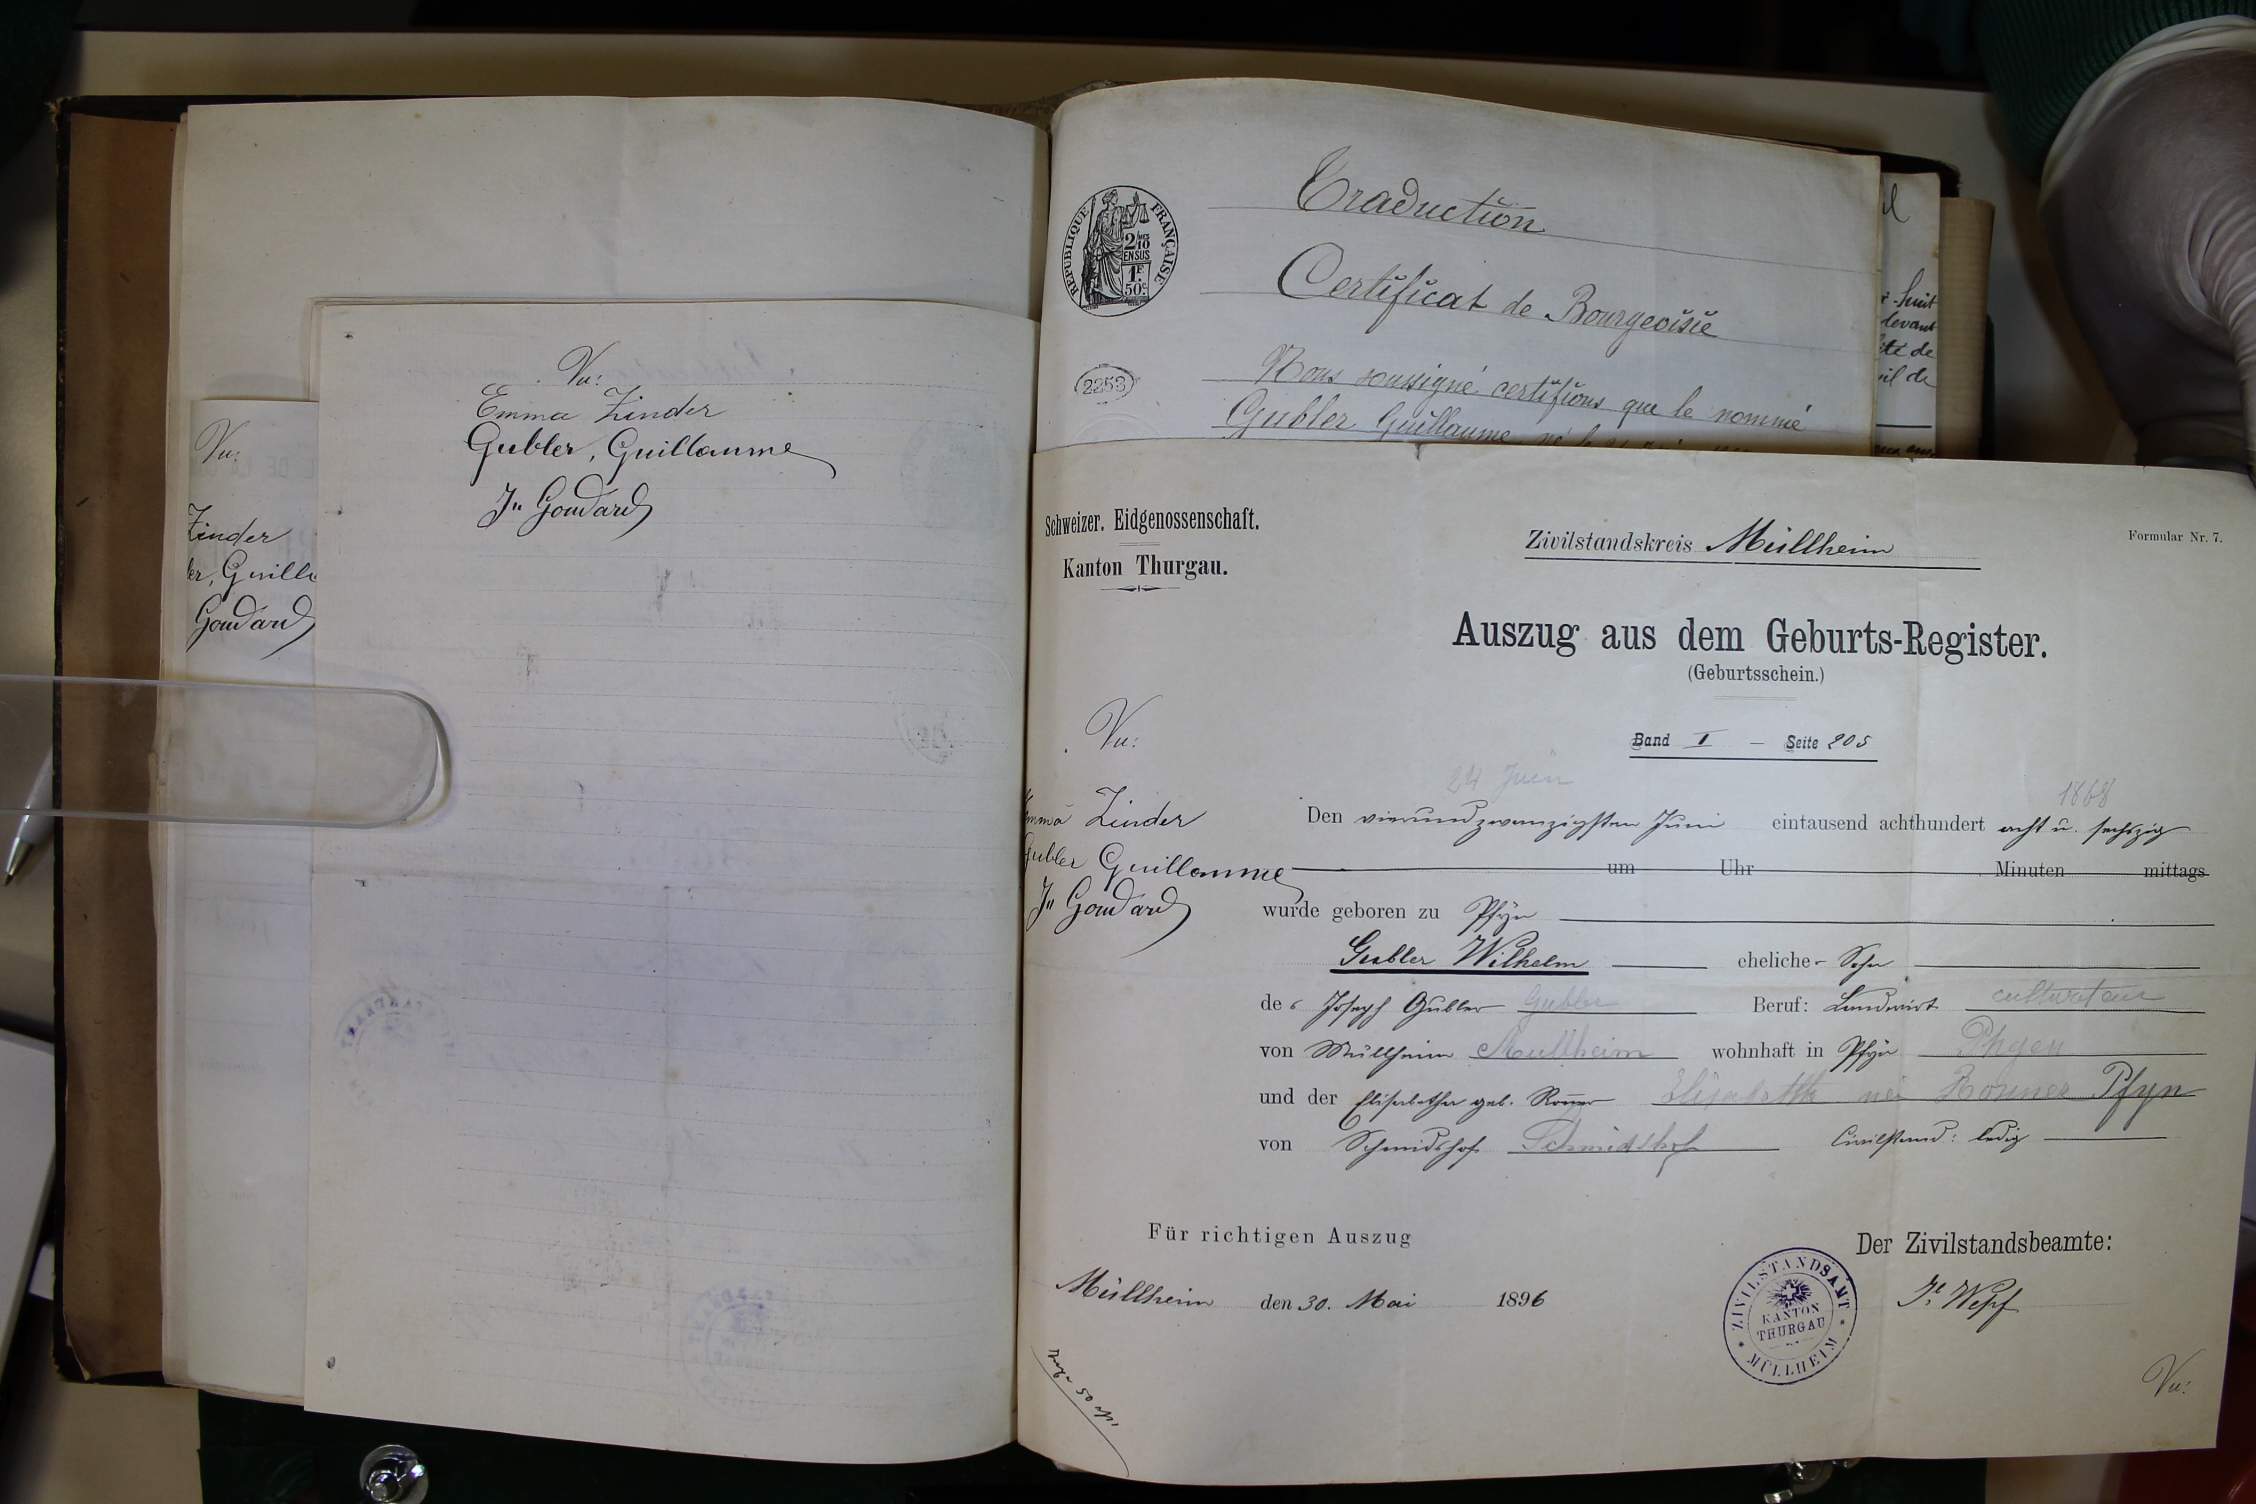 Vu:
Zinder
er, Guilla
Goudard
Vu:
Emma Zinder
Gubler, Guillaume
Jn Goudard
RÉPUBLIQUE FRANÇAISE
2/10
EN SUS
1F.
50c.
2253
Traduction
Certificat de Bourgeoisie
Nous soussigné certifions que le nommé
Gubler Guillaume, né le
huit
levant
té de
il de
Schweizer. Eidgenossenschaft.
Kanton Thurgau.
Zivilstandskreis Müllheim
Formular Nr. 7.
Auszug aus dem Geburts-Register.
(Geburtsschein.)
Band I – Seite 205
Vu:
Emma Zinder
Gubler Guillaume
Jn Goudard
24 Juin 1868
Den vierundzwanzigsten Juni eintausend achthundert acht u. sechszig
um Uhr Minuten mittags
wurde geboren zu Pfyn
Gubler Wilhelm eheliche- Sohn
des Joseph Gubler Gubler Beruf: Landwirt cultivateur
von Müllheim Mullheim wohnhaft in Pfyn Phyen
und der Elisabetha geb. Rommer Elisabetth née Rommer Pfyn
von Schmidshof Schmidshof Civilstand: ledig
Für richtigen Auszug
Müllheim den 30. Mai 1896
Der Zivilstandsbeamte:
ZIVILSTANDSAMT
KANTON
THURGAU
MÜLLHEIM
Wepf
50
Vu: